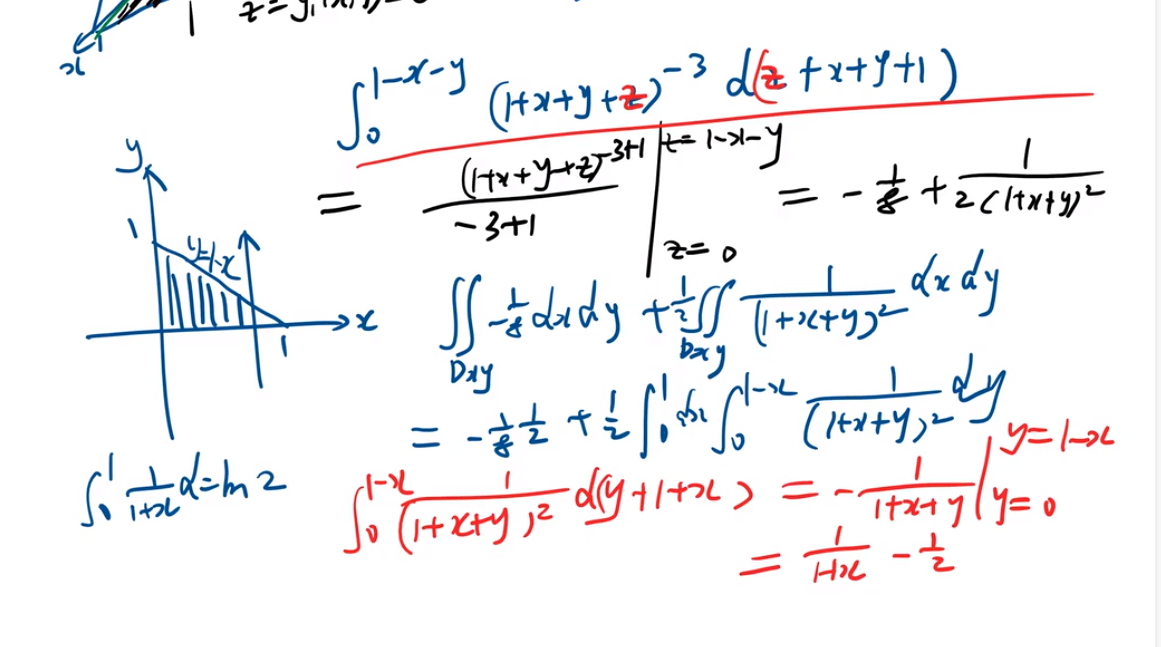 x 1 1 z=y,(x,y)=0
∫₀^{1-x-y} (1+x+y+z)^{-3} d(z+x+y+1)
= (1+x+y+z)^{-3+1} / (-3+1) |_{z=0}^{z=1-x-y} = -1/8 + 1/(2(1+x+y)²)
y
1
y=1-x
x
1
∬_{Dxy} -1/8 dxdy + 1/2 ∬_{Dxy} 1/(1+x+y)² dxdy
= -1/8 1/2 + 1/2 ∫₀¹ dx ∫₀^{1-x} 1/(1+x+y)² dy
∫₀¹ 1/(1+x) d = ln 2
∫₀^{1-x} 1/(1+x+y)² d(y+1+x) = -1/(1+x+y) |_{y=0}^{y=1-x}
= 1/(1+x) - 1/2